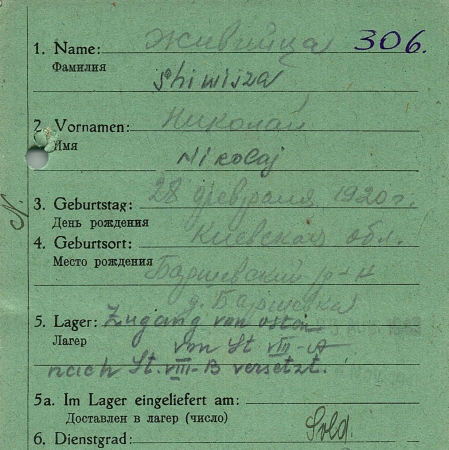 1. Name: Живейца 306.
Фамилия
Shiwijza
2. Vornamen: Николай
Имя
Nikolaj
3. Geburtstag: 28 февраля 1920 г.
День рождения
4. Geburtsort: Киевская обл.
Место рождения Баришевский р-н
д. Баришевка
5. Lager: Zugang von osten
Лагер von St VIII-A
nach St. VIII-B versetzt.
5a. Im Lager eingeliefert am:
Доставлен в лагер (число)
6. Dienstgrad: Sold.
N.